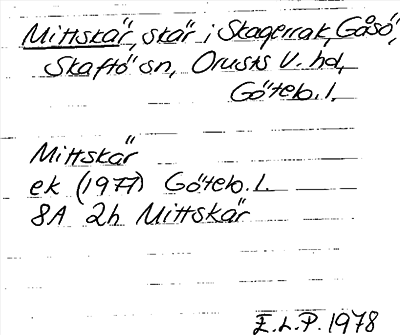 Mittskär, skär i Skagerrak, Gåsö,
Skaftö sn, Orusts V. hd,
Göteb. l.
Mittskär
ek (1977) Göteb. l.
8A 2h Mittskär
E.L.P. 1978